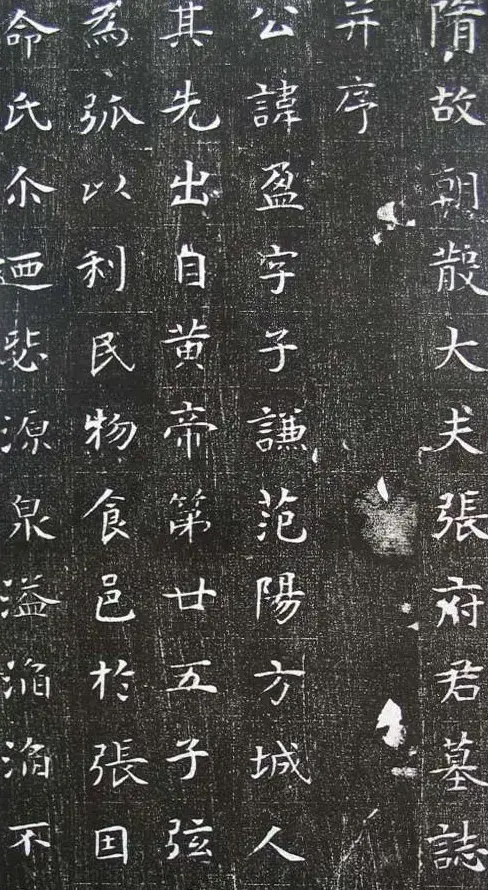 隋故朝散大夫張府君墓誌
并序
公諱盈字子謙范陽方城人
其先出自黃帝第廿五子弦
為弧以利民物食邑於張因
命氏尒迺悲源泉溢滔滔不